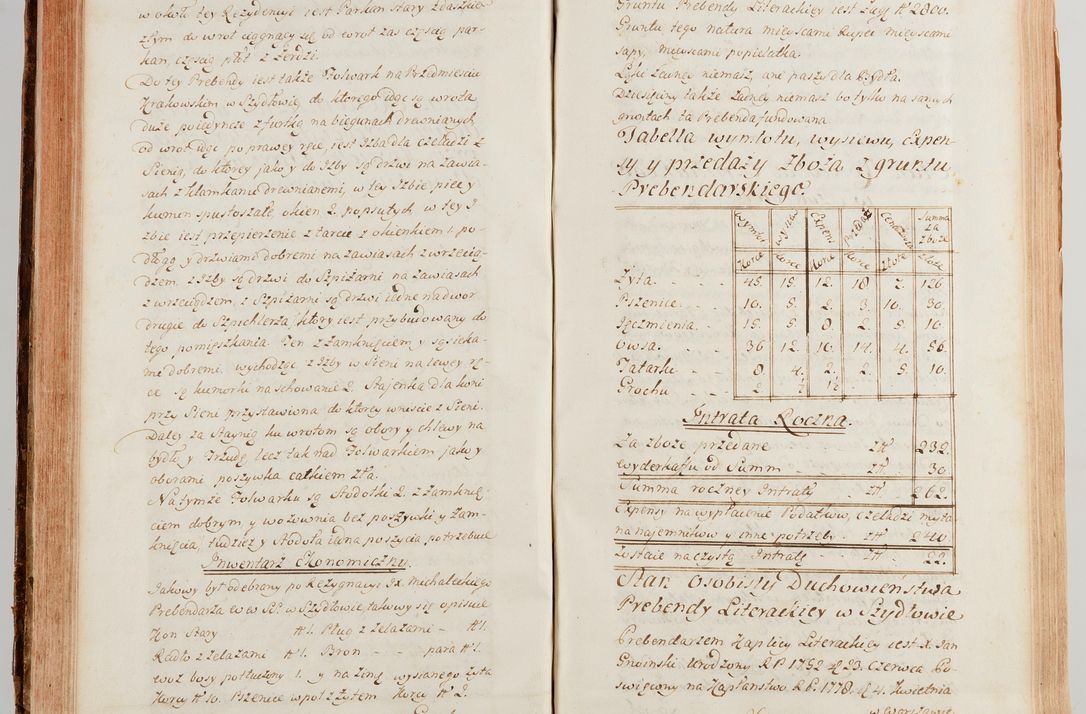 w około tey Rezydencyi iest Parkan stary z daszkie
złym do wrot ciągnący się od wrot zas częscią par-
kan, częscią płot z żerdzi.
Do tey Prebendy iest także Folwark na Przedmiesciu
Krakowskim w Szydłowie, do ktorego idąc są wrota
duże poiedyncze z furtką na biegunach drewnianych
od wrot idąc po prawey ręce, iest Izba dla czeladzi z
Sienią, do ktorey jako y do Izby są drzwi na zawia-
sach z klamkami drewnianemi, w tey Izbie piec y
kumin spustoszałe okien 2. popsutych w tey I
zbie iest przepierzenie z tarcic z okienkiem 1. po-
dłogą y drzwiami dobremi na zawiasach z wrzecią-
dzem. z Izby są drzwi do Spiżarni na zawiasach
z wrzeciądzem, z Spiżarni są drzwi iedne na dwor
drugie do Szpichlerza, ktory iest przybudowany do
tego pomięszkania. Ten z zamknięciem y są sieka-
me dobremi, wychodząc z Izby w Sieni na lewey rę-
ce są kumorki na schowanie 2. Stajenka dla koni
przy Sieni przystawiona do ktorey wniscie z Sieni.
Daley za Staynią ku wrotom są obory y chlewy na
bydło y Trzudę lecz tak nad Folwarkiem jako y
oborami poszywka całkiem zła.
Na tymże Folwarku są Stodołki 2. z zamknię-
ciem dobrym y wozownia bez poszywki y zam-
knięcia, tudzież y Stodoła iedna poszycia potrzebuie
Inwentarz Ekonomiczny.
Jakowy był odebrany po Rezygnacyi Jx. Michaleckiego
Prebendarza w Szydłowie, takowy się opisuie
Kon Stary N 1. Pług z żelazami - N 1.
Radło z żelazami N 1. Bron - - para N 1.
woz bosy potłuczony 1. y na zimę wysianego żyta
Korcy N 10. Pszenice wpoł z żytem Korcy N 2.
Gruntu Prebendy Literackiey iest zagy N 2800.
Gruntu tego natura mieyscami kupec mieyscami
sapy, mieyscami popielatka.
Łąki żadney niemasz, ani paszy dla Bydła.
Dziesięciny także żadney niemasz bo tylko na samych
gruntach ta Prebenda fundowana
Tabella wymłotu, wysiewu, Expen-
sy y przedaży Zboża z gruntu
Prebendarskiego
Wymłot wysiew Expens przedaż Cena zboża Summa za zboże
Korce Korce Korce Korce Złote Złote
Żyta. - - - 45. 15. 12. 18 7. 126
Pszenice. - - 10. 5. 2. 3. 10. 30.
Jęczmienia. - - 15. 5. 8. 2. 5. 10.
Owsa. - - - 36 12. 10. 14. 4. 56.
Tatarki - - - 8. 4. 2. 2. 5. 10.
Grochu - - 2.
Intrata Roczna.
Za zboże przedane - - Zł 232.
Wyderkafu od Summ - - - Zł 30.
Summa roczney Intraty - Zł 262.
Expensy na wypłacenie Podatkow, Czeladzi myta-
na najemnikow y inne potrzeby. - Zł 240
Zostaie na czystą Intratę - - Zł 22.
Stan Osobisty Duchowienstwa
Prebendy Literackiey w Szydłowie
Prebendarzem Kaplicy Literackiey iest X. Jan
Gnoinski Urodzony R P. 1752 d 23. Czerwca Po-
swięcony na Kapłanstwo R P. 1778. d 4. Kwietnia
w Warszawie